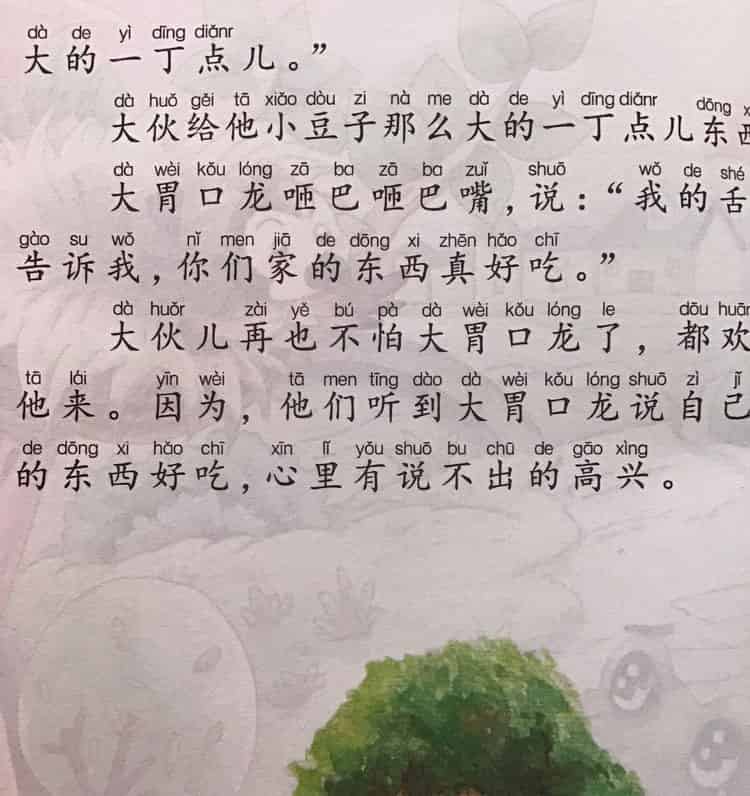 dà de yì dīng diǎnr
大的一丁点儿。”
dà huǒ gěi tā xiǎo dòu zi nà me dà de yì dīng diǎnr dōng x
大伙给他小豆子那么大的一丁点儿东西
dà wèi kǒu lóng zā ba zā ba zuǐ shuō wǒ de shé
大胃口龙咂巴咂巴嘴，说：“我的舌
gào su wǒ nǐ men jiā de dōng xi zhēn hǎo chī
告诉我，你们家的东西真好吃。”
dà huǒr zài yě bú pà dà wèi kǒu lóng le dōu huān
大伙儿再也不怕大胃口龙了，都欢
tā lái yīn wèi tā men tīng dào dà wèi kǒu lóng shuō zì jǐ
他来。因为，他们听到大胃口龙说自己
de dōng xi hǎo chī xīn lǐ yǒu shuō bu chū de gāo xìng
的东西好吃，心里有说不出的高兴。